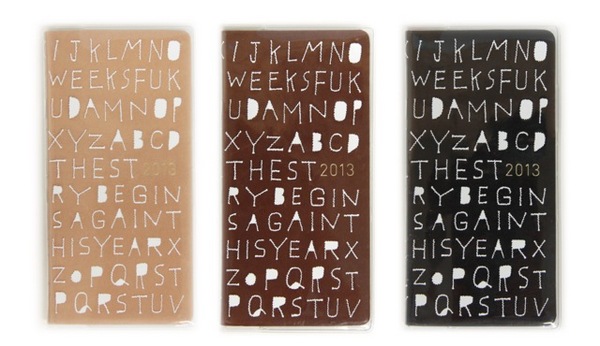 IJKLMNO
WEEKSFUK
UDAMNOP
XYZABCD
THEST 2013
RYBEGIN
SAGAINT
HISYEARX
ZOPQRST
PQRSTUV
IJKLMNO
WEEKSFUK
UDAMNOP
XYZABCD
THEST 2013
RYBEGIN
SAGAINT
HISYEARX
ZOPQRST
PQRSTUV
IJKLMNO
WEEKSFUK
UDAMNOP
XYZABCD
THEST 2013
RYBEGIN
SAGAINT
HISYEARX
ZOPQRST
PQRSTUV